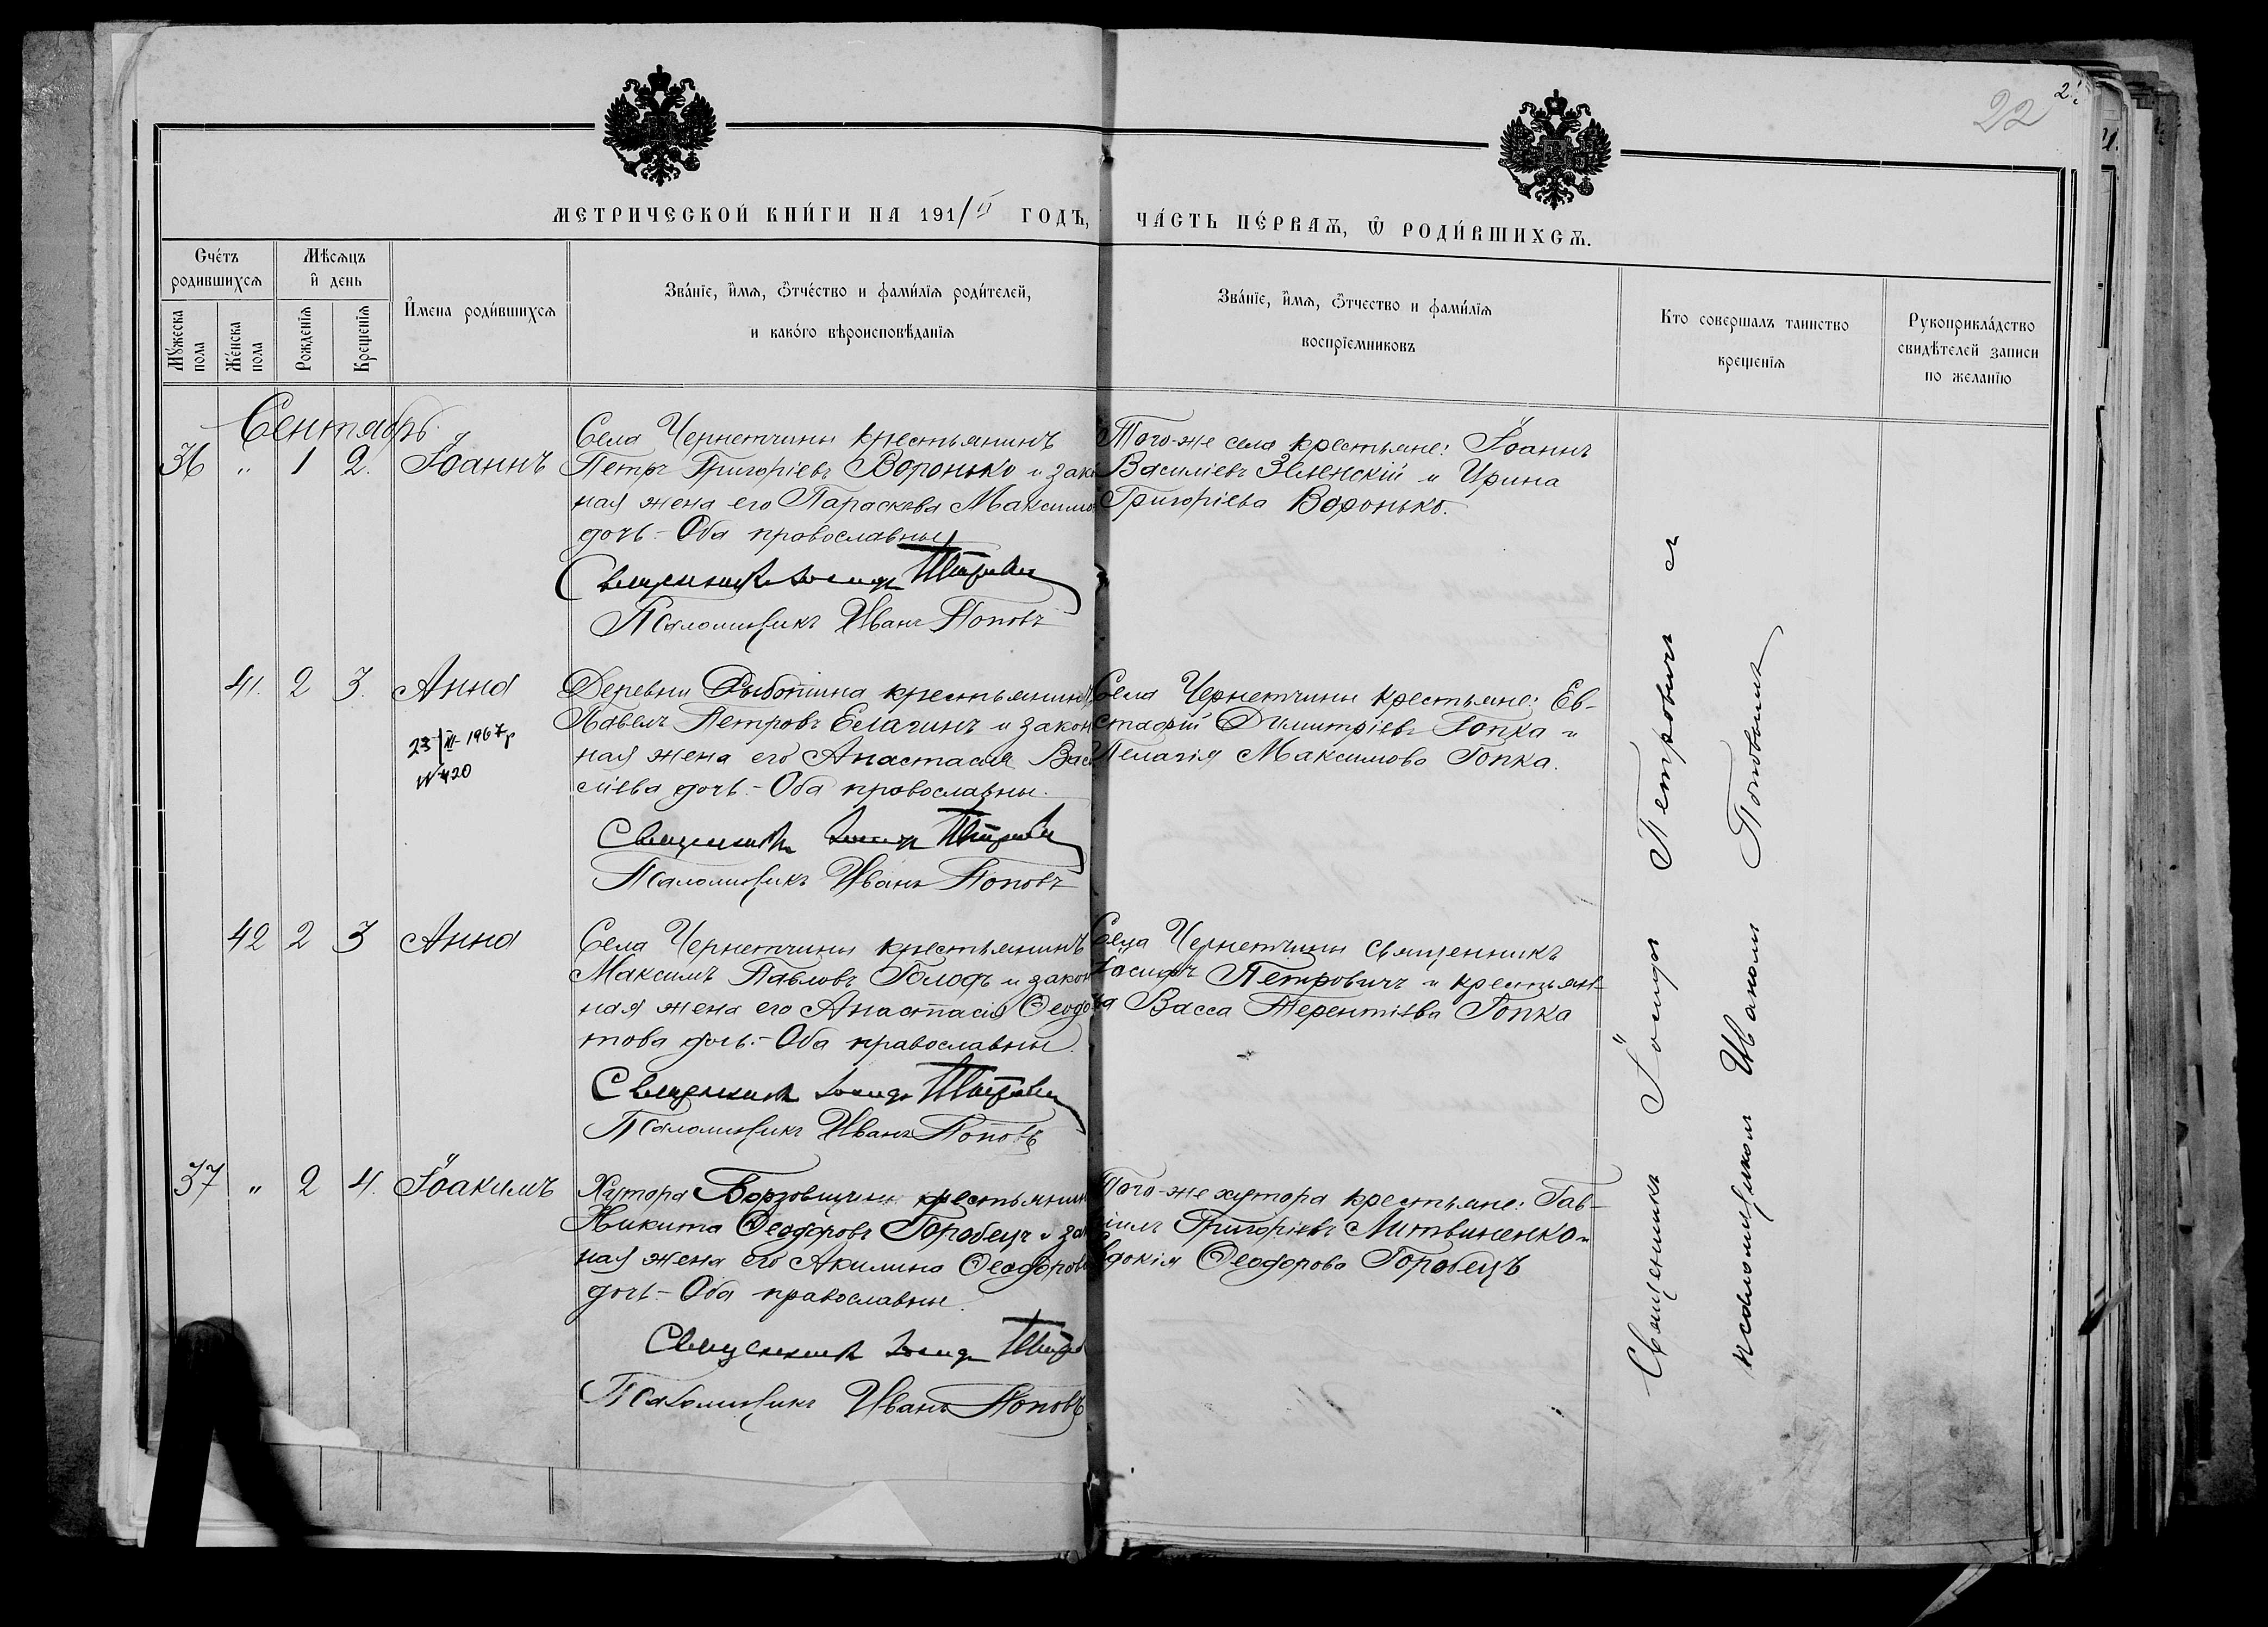 22
МЕТРИЧЕСКОЙ КНИ́ГИ НА 191 ГОДЪ,
ЧА́СТЬ ПЕ́РВАѦ, Ѿ РОДИ́ВШИХСѦ.
Сче́тъ родившихсѧ
Мꙋ́жеска пола
Же́нска пола
Мѣсѧцъ и҆ день
Рожденїѧ
Крещенїѧ
И҆мена роди́вшихсѧ
Зва́нїе, и҆мѧ, ѻ҆тче́ство и фами́лїѧ роди́телей,
и како́го вѣроисповѣ́данїѧ
Зва́нїе, и҆мѧ, ѻ҆тчество и фами́лїѧ
воспрїемниковъ
Кто совершалъ таинство
крещенїѧ
Рукоприкла́дство
свидѣтелей записи
по желанїю
Сентябрь.
36 " 1 2. Іоаннъ
Села Чернетчины крестьянинъ
Петръ Григоріевъ Воронько и зако
ная жена его Параскева Максимо
дочь.- Оба православны
Священникъ Іосифъ Петрович
Псаломщикъ Иванъ Попов
Того-же села крестьяне: Іоаннъ
Василіевъ Зеленскій и Ирина
Григоріева Воронько.
41. 2 3. Анна
23/III-1967р
№420
Деревни крестьянинъ
Павелъ Петровъ Елагинъ и закон
ная жена его Анастасія Васи
сліева дочь.- Оба православны.
Священникъ Іосифъ Петрович
Псаломщикъ Иванъ Попов
Села Чернетчины крестьяне: Ев-
стафій Димитріевъ Гопка и
Пелагія Максимова Гопка.
42 2 3 Анна
Села Чернетчины крестьянинъ
Максимъ Павловъ и закон
ная жена его Анастасія Ѳеодо
това дочь.- Оба православны.
Священникъ Іосифъ Петрович
Псаломщикъ Иванъ Попов
Села Чернетчины священникъ
Іосифъ Петровичъ и крестьян-
ка Васса Терентіева Гопка
37 " 2 4. Іоакимъ
Хутора крестьянин
Никита Ѳеодоровъ Горобецъ и зак
ная жена его Акилина Ѳеодоров
дочь.- Оба православны.
Священникъ Іосифъ Петро
Псаломщикъ Иванъ Попов
Того-же хутора крестьяне: Гав-
іилъ Григоріевъ Литвиненко и
вдокія Ѳеодорова Горобецъ
Священникъ Іосифъ Петровичъ съ
псаломщикомъ Иваномъ Поповымъ